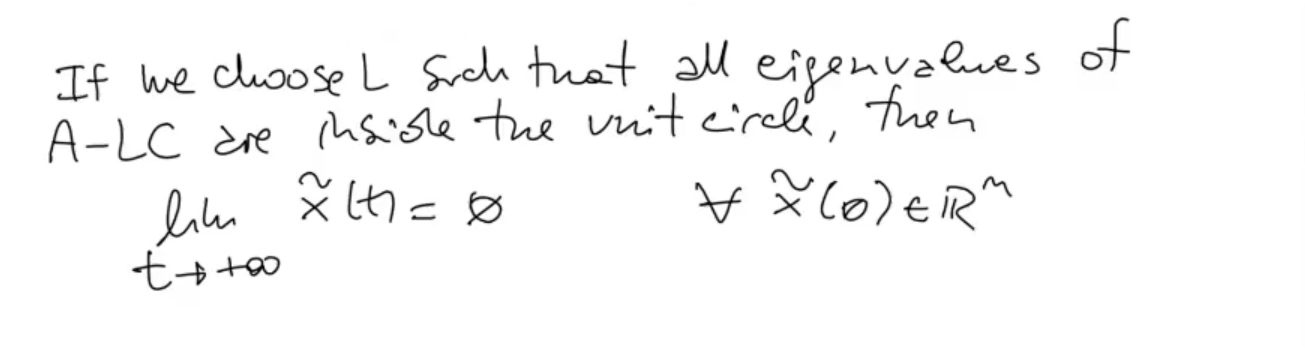 If we choose L such that all eigenvalues of
A-LC are inside the unit circle, then
lim x̃(t) = 0 ∀ x̃(0) ∈ ℝⁿ
t→+∞